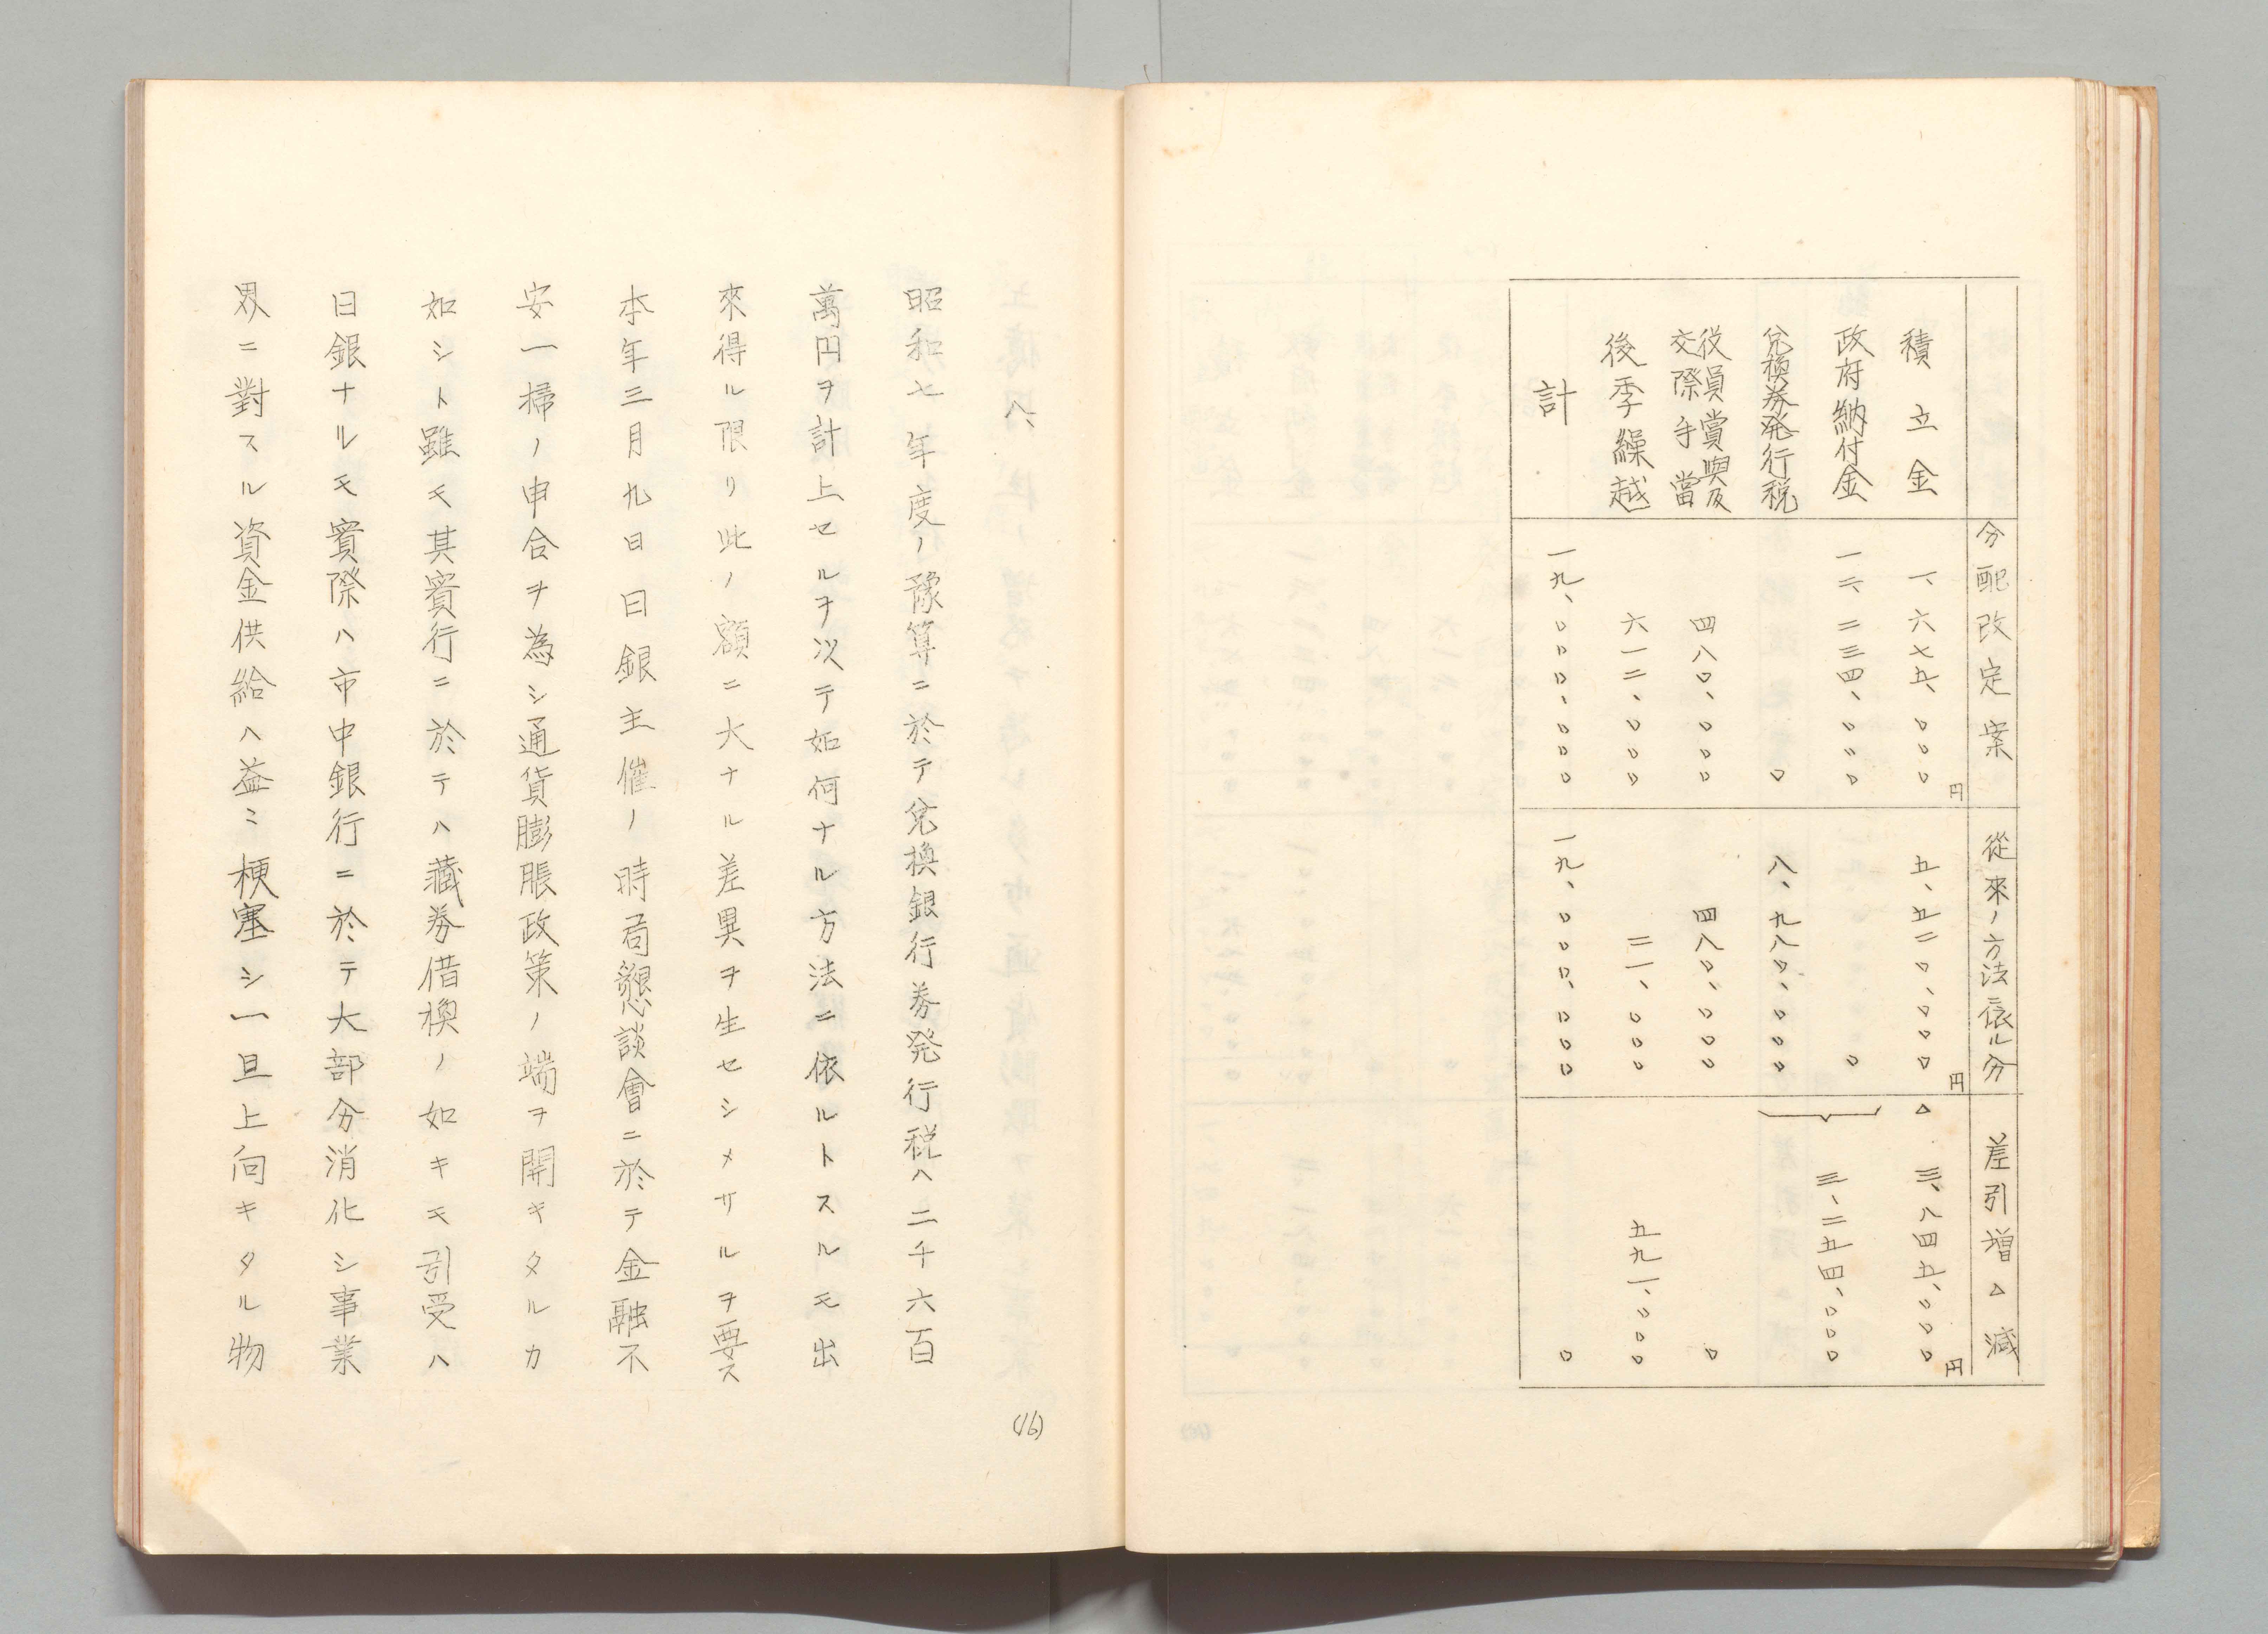 分配改定案 從來ノ方法ニ依ル分 差引増△減
円 円 円
積立金 一、六七五、〇〇〇 五、五二〇、〇〇〇 △三、八四五、〇〇〇
政府納付金 一二、二三四、〇〇〇 〇 三、二五四、〇〇〇
兌換券発行税 〇 八、九八〇、〇〇〇
役員賞與及交際手當 四八〇、〇〇〇 四八〇、〇〇〇 〇
後季繰越 六一二、〇〇〇 二一、〇〇〇 五九一、〇〇〇
計 一九、〇〇〇、〇〇〇 一九、〇〇〇、〇〇〇 〇
八、
昭和七年度ノ豫算ニ於テ兌換銀行券発行税ハ二千六百
萬円ヲ計上セルヲ以テ如何ナル方法ニ依ルトスルモ出
來得ル限リ此ノ額ニ大ナル差異ヲ生セシメサルヲ要ス
本年三月九日日銀主催ノ時局懇談會ニ於テ金融不
安一掃ノ申合ヲ為シ通貨膨脹政策ノ端ヲ開キタルカ
如シト雖モ其實行ニ於テハ藏券借換ノ如キモ引受ハ
日銀ナルモ實際ハ市中銀行ニ於テ大部分消化シ事業
界ニ對スル資金供給ハ益ミ梗塞シ一旦上向キタル物
(16)